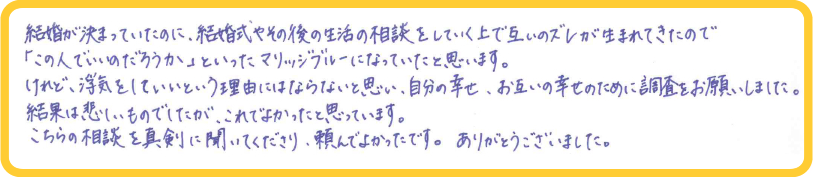 結婚が決まっていたのに、結婚式やその後の生活の相談をしていく上で互いのズレが生まれてきたので
「この人でいいのだろうか」といったマリッジブルーになっていたと思います。
けれど、浮気をしていいという理由にはならないと思い、自分の幸せ、お互いの幸せのために調査をお願いしました。
結果は悲しいものでしたが、これでよかったと思っています。
こちらの相談を真剣に聞いてくださり、頼んでよかったです。ありがとうございました。